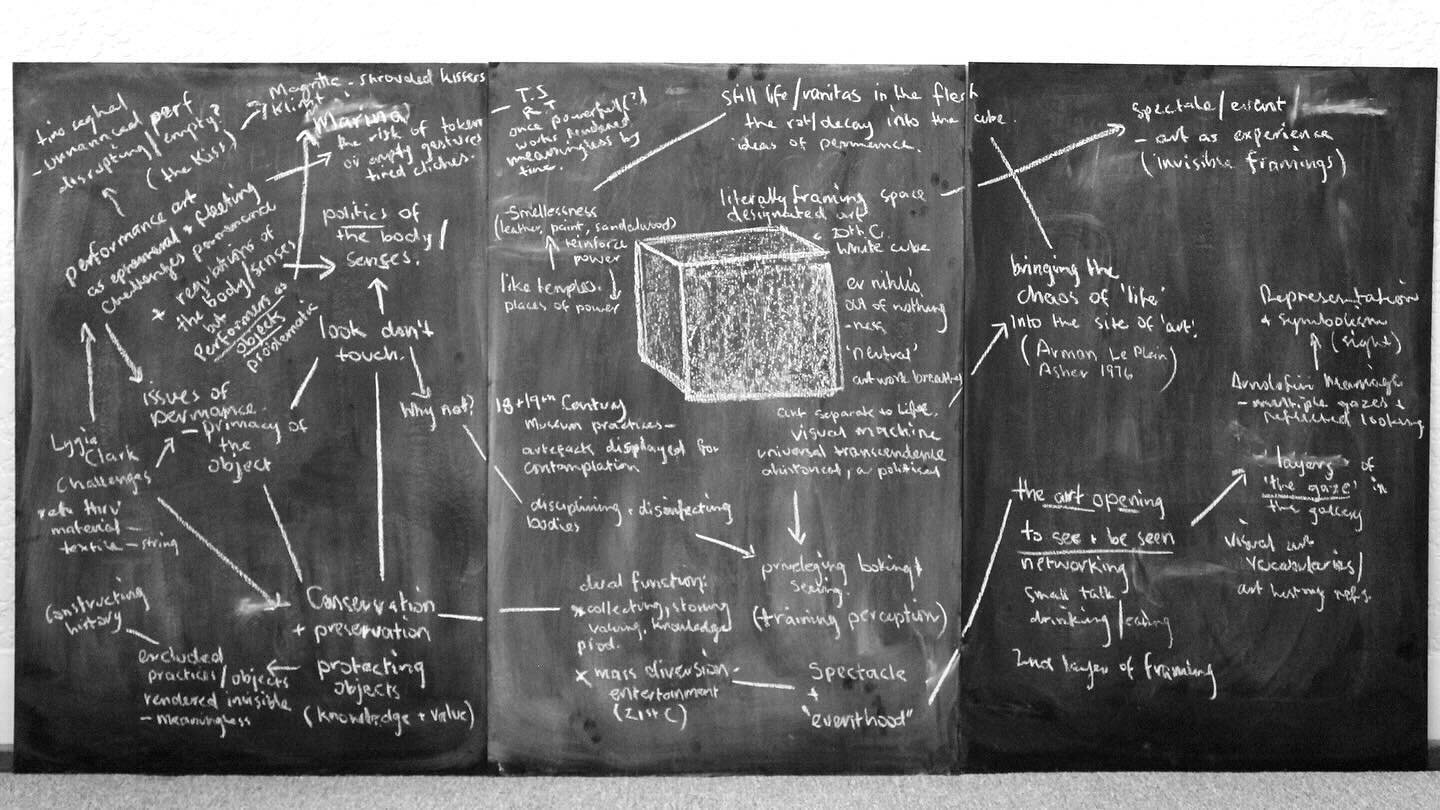 tino seghal
- unmanned perf
disrupting/empty?
(the Kiss)
Magritte - shrouded kissers
Klimt
Marina
the risk of token
or empty gestures
tired cliches.
performance art
as ephemeral & fleeting
challenges permanence
+ regulations of
the body/senses
but
performers as
objects
problematic
politics of
the body/
senses.
look don't
touch.
Why not?
issues of
permanance
- primacy of
the
object
Lygia
Clark
Challenges
material -
textile - string
Constructing
history
Conservation
+ preservation
protecting
objects
(knowledge + value)
excluded
practices/objects
rendered invisible
- meaningless
- T.S
R.T
once powerful(?)
works rendered
meaningless by
time.
still life/vanitas in the flesh
the rot/decay into the cube.
ideas of permenence.
- Smellessness
(leather, paint, sandalwood)
reinforce
power
like temples.
places of power
literally framing space
designated art
20th C.
white cube
ex nihilo
out of nothing
- ness
'neutral'
artwork breathes
art separate to life.
visual machine
universal transcendence
ahistorical, a political
18+19th Century
Museum practices -
artefacts displayed for
contemplation
disciplining + disinfecting
bodies
priveleging looking +
seeing.
(training perception)
dual function:
x collecting, storing
valuing, knowledge
prod.
x mass diversion
entertainment
(21st C)
Spectacle
+
"eventhood"
spectale/event/
- art as experience
(invisible framings)
bringing the
chaos of 'life'
into the site of 'art'.
(Arman Le Plein
Asher 1976)
Representation
+ symbolism
(sight)
Arnolfini Marriage
- multiple gazes +
reflected looking
layers of
'the gaze' in
the gallery
visual art
vocabularies/
art history refs.
the art opening
to see + be seen
networking
small talk
drinking/eating
2nd layer of framing